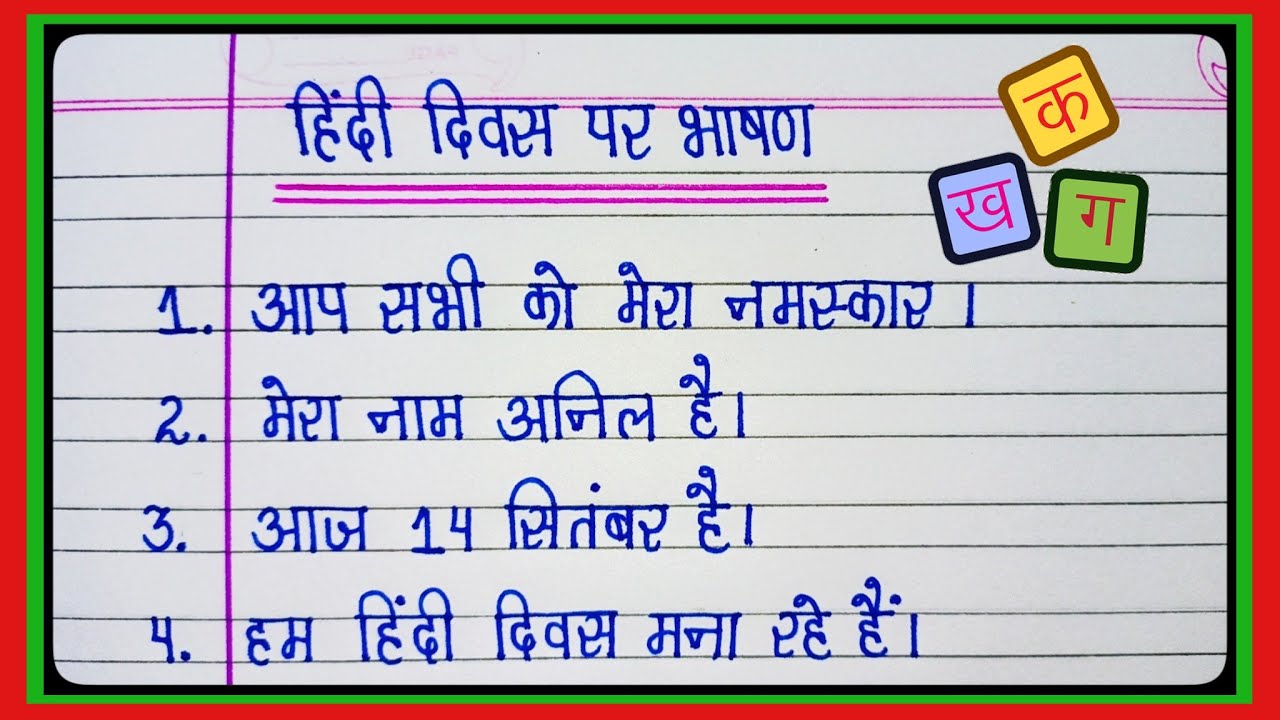 हिंदी दिवस पर भाषण
क
ख ग
1. आप सभी को मेरा नमस्कार ।
2. मेरा नाम अनिल है।
3. आज 14 सितंबर है।
4. हम हिंदी दिवस मना रहे हैं।